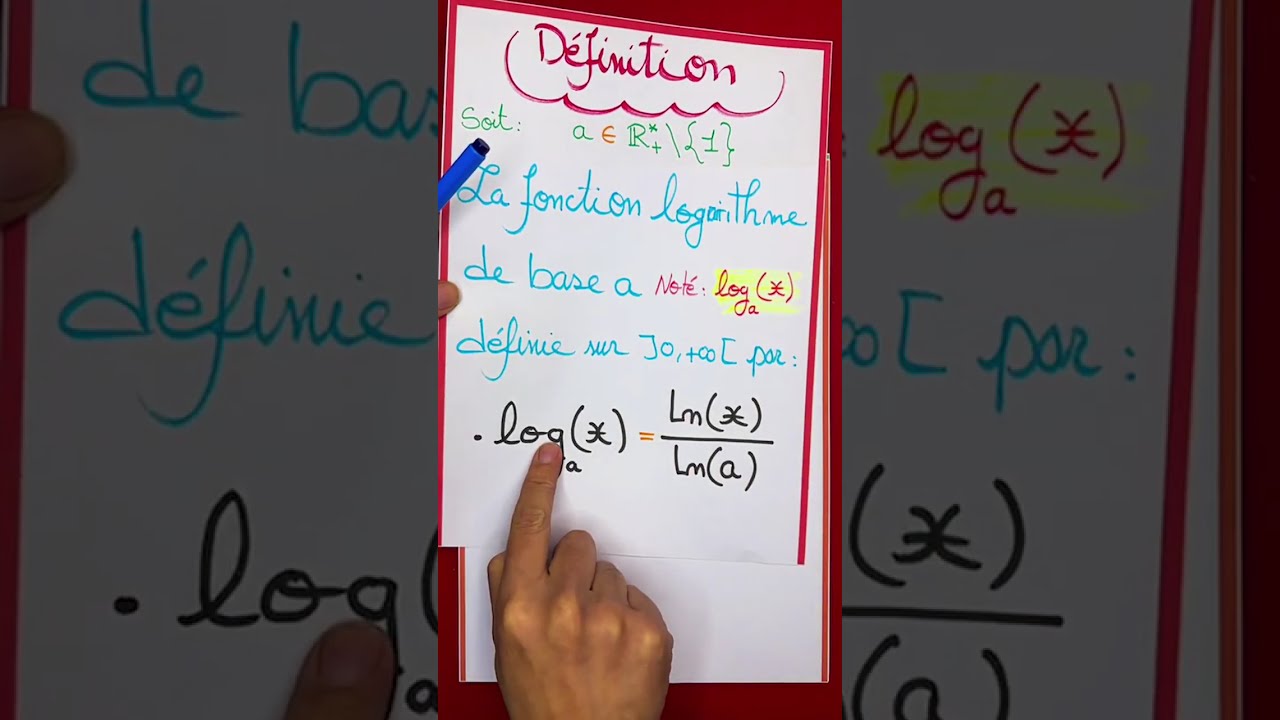 Définition
Soit: a ∈ ℝ*₊ \ {1}
La fonction logarithme
de base a Noté: logₐ(x)
définie sur ]0,+∞[ par:
. logₐ(x) = Ln(x)/Ln(a)